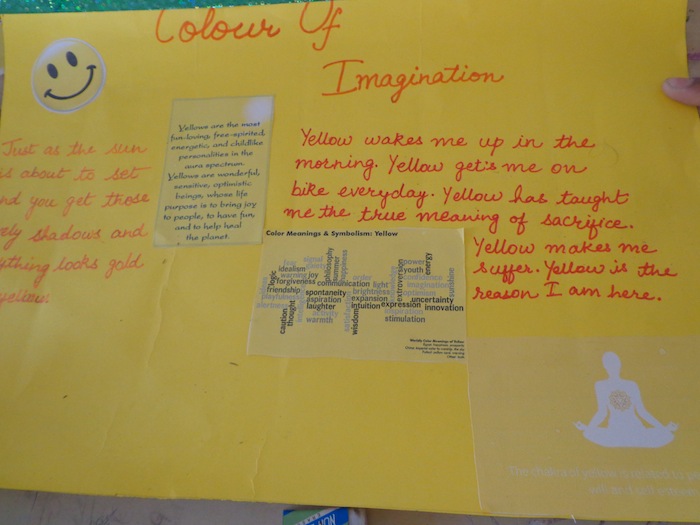 Colour Of
Imagination
Just as the sun
is about to set
nd you get those
ely shadows and
ything looks gold
yellow
Yellows are the most
fun-loving, free-spirited,
energetic, and childlike
personalities in the
aura spectrum.
Yellows are wonderful,
sensitive, optimistic
beings, whose life
purpose is to bring joy
to people, to have fun,
and to help heal
the planet.
Yellow wakes me up in the
morning. Yellow get's me on
bike everyday. Yellow has taught
me the true meaning of sacrifice.
Yellow makes me
suffer. Yellow is the
reason I am here.
Color Meanings & Symbolism: Yellow
signal
idealism
warning joy
forgiveness communication
logic
friendship
playfulness
spontaneity
aspiration
laughter
activity
warmth
caution
thought
philosophy
summer
happiness
order
light
brightness
expansion
intuition expression
wisdom
satisfaction
extroversion
power
youth
energy
confidence
imagination
optimism
uncertainty
innovation
inspiration
stimulation
sunshine
The chakra of yellow is related to